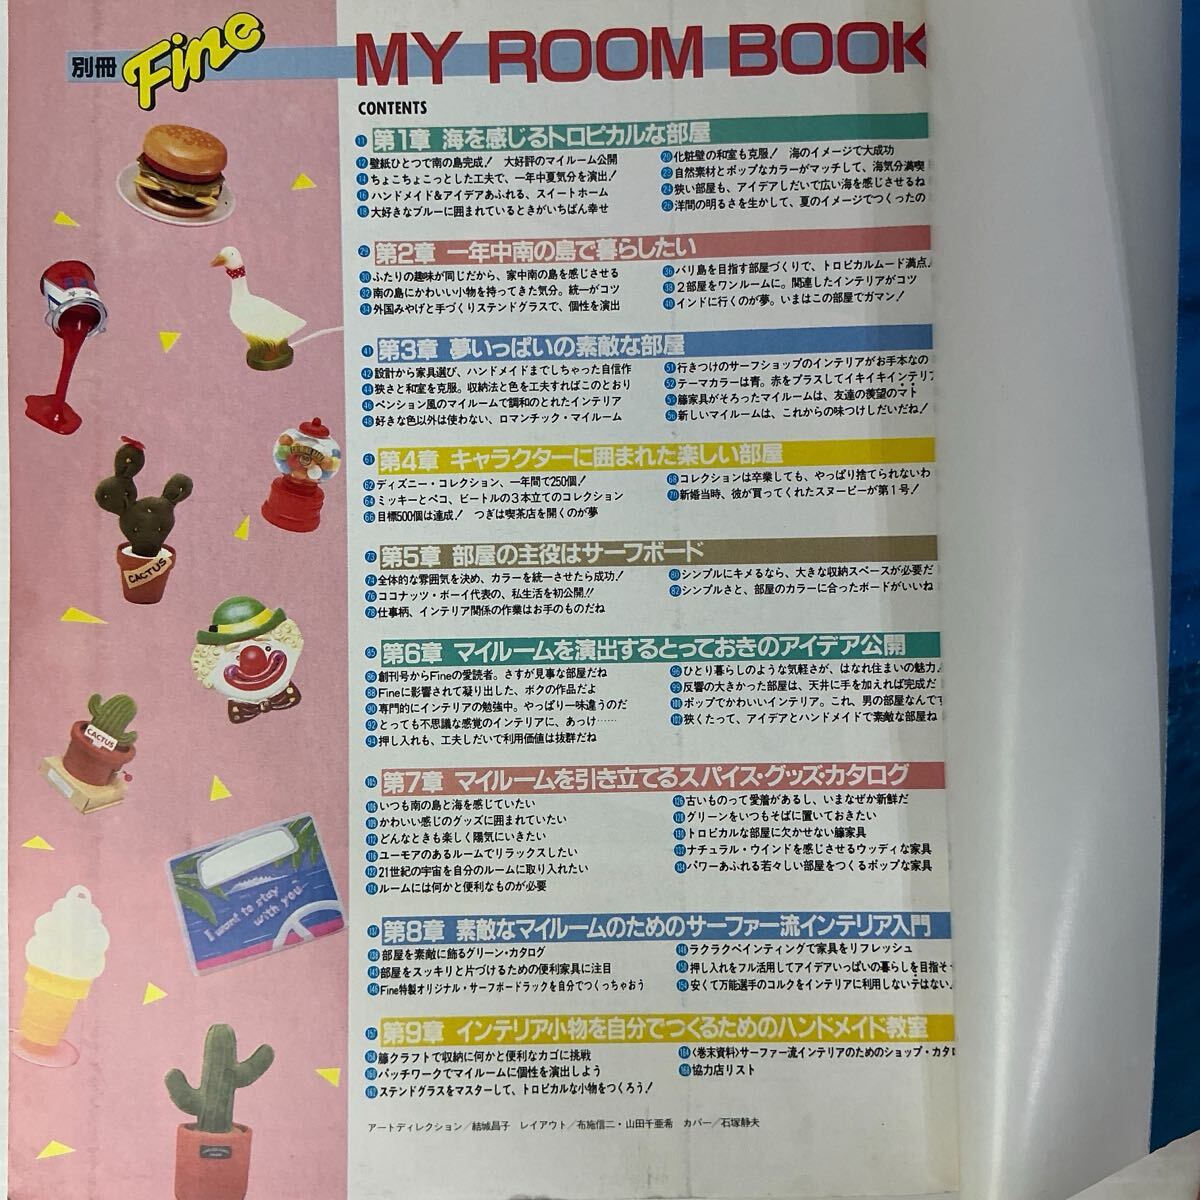 別冊 Fine
MY ROOM BOOK
CONTENTS
11 第1章 海を感じるトロピカルな部屋
12 壁紙ひとつで南の島完成! 大好評のマイルーム公開
14 ちょこちょこっとした工夫で、一年中夏気分を演出!
16 ハンドメイド&アイデアあふれる、スイートホーム
18 大好きなブルーに囲まれているときがいちばん幸せ
20 化粧壁の和室も克服! 海のイメージで大成功
23 自然素材とポップなカラーがマッチして、海気分満喫
24 狭い部屋も、アイデアしだいで広い海を感じさせるね
26 洋間の明るさを生かして、夏のイメージでつくったの
29 第2章 一年中南の島で暮らしたい
30 ふたりの趣味が同じだから、家中南の島を感じさせる
32 南の島にかわいい小物を持ってきた気分。統一がコツ
34 外国みやげと手づくりステンドグラスで、個性を演出
36 バリ島を目指す部屋づくりで、トロピカルムード満点
38 2部屋をワンルームに。関連したインテリアがコツ
40 インドに行くのが夢。いまはこの部屋でガマン!
41 第3章 夢いっぱいの素敵な部屋
42 設計から家具選び、ハンドメイドまでしちゃった自信作
44 狭さと和室を克服。収納法と色を工夫すればこのとおり
46 ペンション風のマイルームで調和のとれたインテリア
48 好きな色以外は使わない、ロマンチック・マイルーム
51 行きつけのサーフショップのインテリアがお手本なの
52 テーマカラーは青。赤をプラスしてイキイキインテリア
54 籐家具がそろったマイルームは、友達の羨望のマト
56 新しいマイルームは、これからの味つけしだいだね!
61 第4章 キャラクターに囲まれた楽しい部屋
62 ディズニー・コレクション、一年間で250個!
64 ミッキーとペコ、ビートルの3本立てのコレクション
66 目標500個は達成! つぎは喫茶店を開くのが夢
68 コレクションは卒業しても、やっぱり捨てられないわ
70 新婚当時、彼が買ってくれたスヌーピーが第1号!
73 第5章 部屋の主役はサーフボード
74 全体的な雰囲気を決め、カラーを統一させたら成功!
76 ココナッツ・ボーイ代表の、私生活を初公開!!
78 仕事柄、インテリア関係の作業はお手のものだね
80 シンプルにキメるなら、大きな収納スペースが必要だ
82 シンプルさと、部屋のカラーに合ったボードがいいね
85 第6章 マイルームを演出するとっておきのアイデア公開
86 創刊号からFineの愛読者。さすが見事な部屋だね
88 Fineに影響されて凝り出した、ボクの作品だよ
90 専門的にインテリアの勉強中。やっぱり一味違うのだ
92 とっても不思議な感覚のインテリアに、あっけ……
94 押し入れも、工夫しだいで利用価値は抜群だね
96 ひとり暮らしのような気軽さが、はなれ住まいの魅力
99 反響の大きかった部屋は、天井に手を加えれば完成だ
100 ポップでかわいいインテリア。これ、男の部屋なんです
102 狭くたって、アイデアとハンドメイドで素敵な部屋ね
105 第7章 マイルームを引き立てるスパイス・グッズ・カタログ
106 いつも南の島と海を感じていたい
109 かわいい感じのグッズに囲まれていたい
112 どんなときも楽しく陽気にいきたい
116 ユーモアのあるルームでリラックスしたい
122 21世紀の宇宙を自分のルームに取り入れたい
124 ルームには何かと便利なものが必要
126 古いものって愛着があるし、いまなぜか新鮮だ
128 グリーンをいつもそばに置いておきたい
130 トロピカルな部屋に欠かせない籐家具
132 ナチュラル・ウインドを感じさせるウッディな家具
134 パワーあふれる若々しい部屋をつくるポップな家具
137 第8章 素敵なマイルームのためのサーファー流インテリア入門
138 部屋を素敵に飾るグリーン・カタログ
143 部屋をスッキリと片づけるための便利家具に注目
146 Fine特製オリジナル・サーフボードラックを自分でつくっちゃおう
148 ラクラクペインティングで家具をリフレッシュ
150 押し入れをフル活用してアイデアいっぱいの暮らしを目指そ
154 安くて万能選手のコルクをインテリアに利用しないテはない
157 第9章 インテリア小物を自分でつくるためのハンドメイド教室
158 籐クラフトで収納に何かと便利なカゴに挑戦
160 パッチワークでマイルームに個性を演出しよう
162 ステンドグラスをマスターして、トロピカルな小物をつくろう!
164 〈巻末資料〉サーファー流インテリアのためのショップ・カタロ
168 協力店リスト
アートディレクション/結城昌子 レイアウト/布施信二・山田千亜希 カバー/石塚静夫
CACTUS
CACTUS
I want to stay
with you